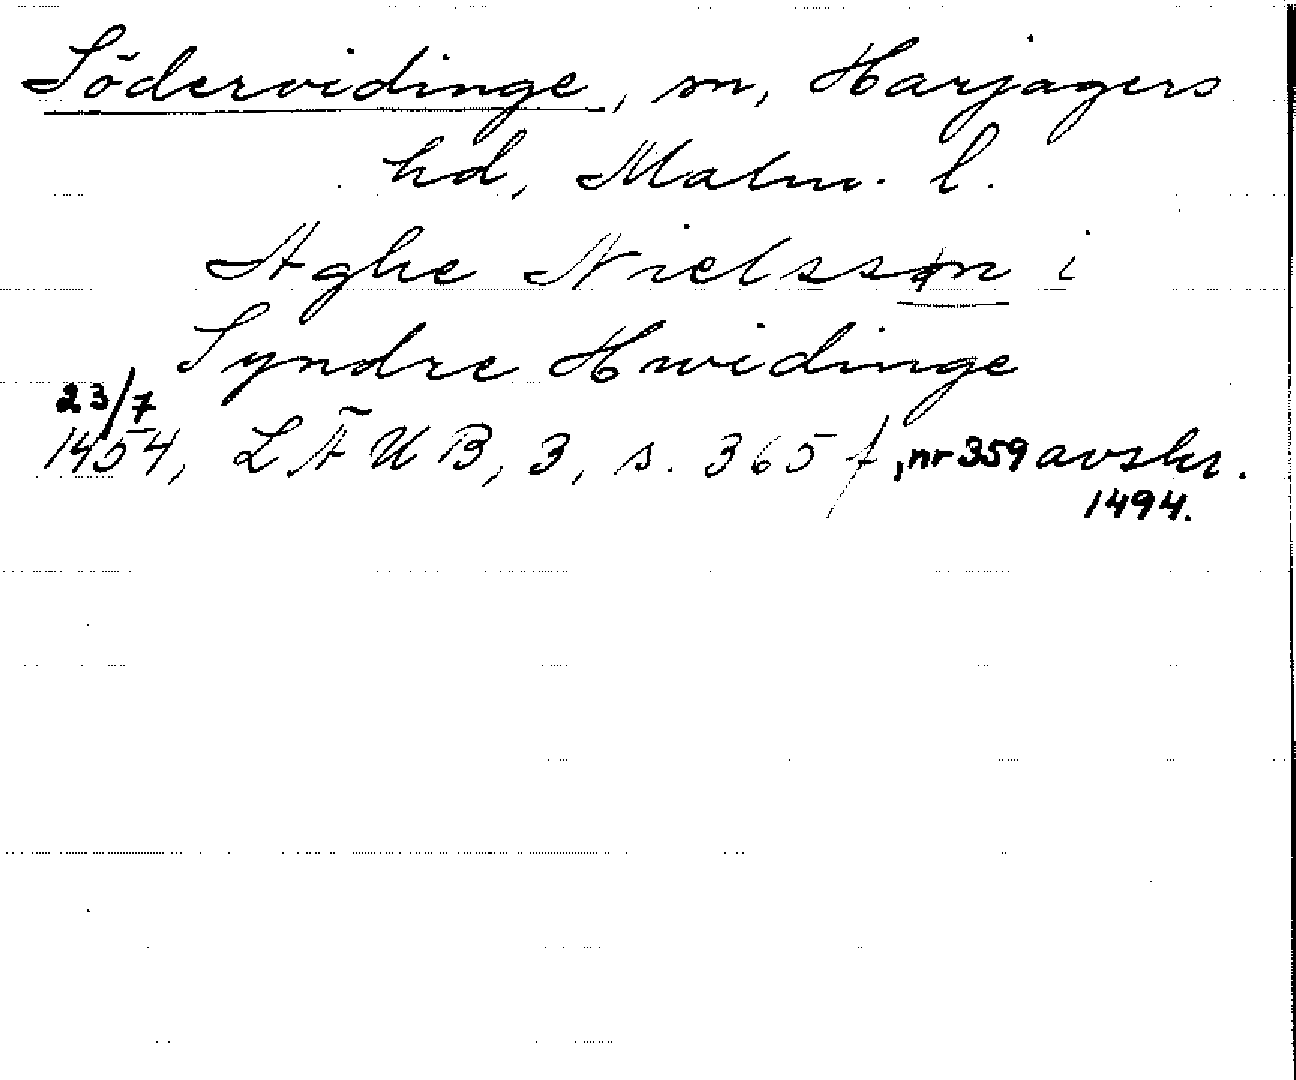 Södervidinge, sn, Harjagers
hd, Malm. l.
Aghe Nielssøn i
Syndre Hwidinge
23/7
1454, LÄUB, 3, s. 365 f, nr 359 avskr.
1494.